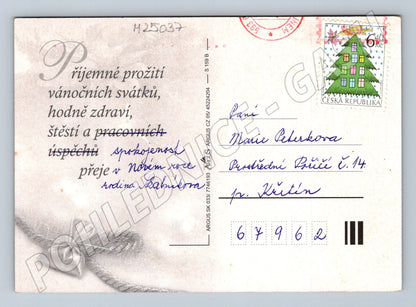 M25037
Příjemné prožití
vánočních svátků,
hodně zdraví,
štěstí a pracovních
úspěchů spokojenost
přeje v Novém roce
rodina
S 159 B
ARGUS SK 033/ 7746193
ARGUS CZ 05/ 45224204
6
ČESKÁ REPUBLIKA
Paní
Marie Peterkova
Prostřední Poříčí č. 14
p. Křetín
6 7 9 6 2
POHLEDNICE